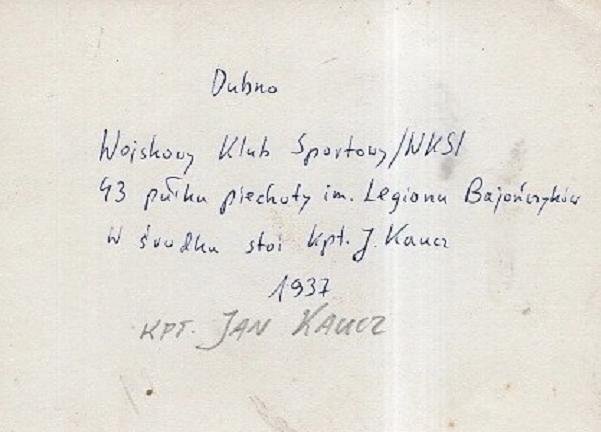 Dubno
Wojskowy Klub Sportowy /WKS/
43 pułku piechoty im. Legionu Bajończyków
W środku stoi kpt. J. Kaucz
1937
KPT. JAN KAUCZ